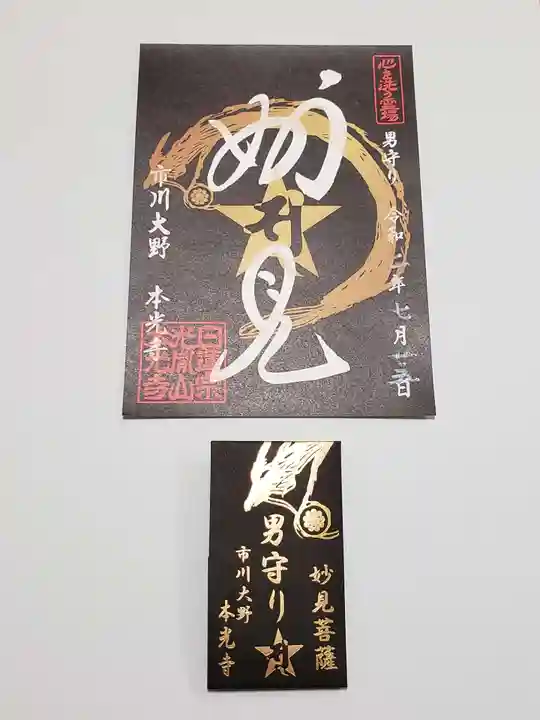 心を洗う霊場
男守り 令和二年七月廿五日
妙見
市川大野 本光寺
妙見菩薩
男守り
市川大野
本光寺